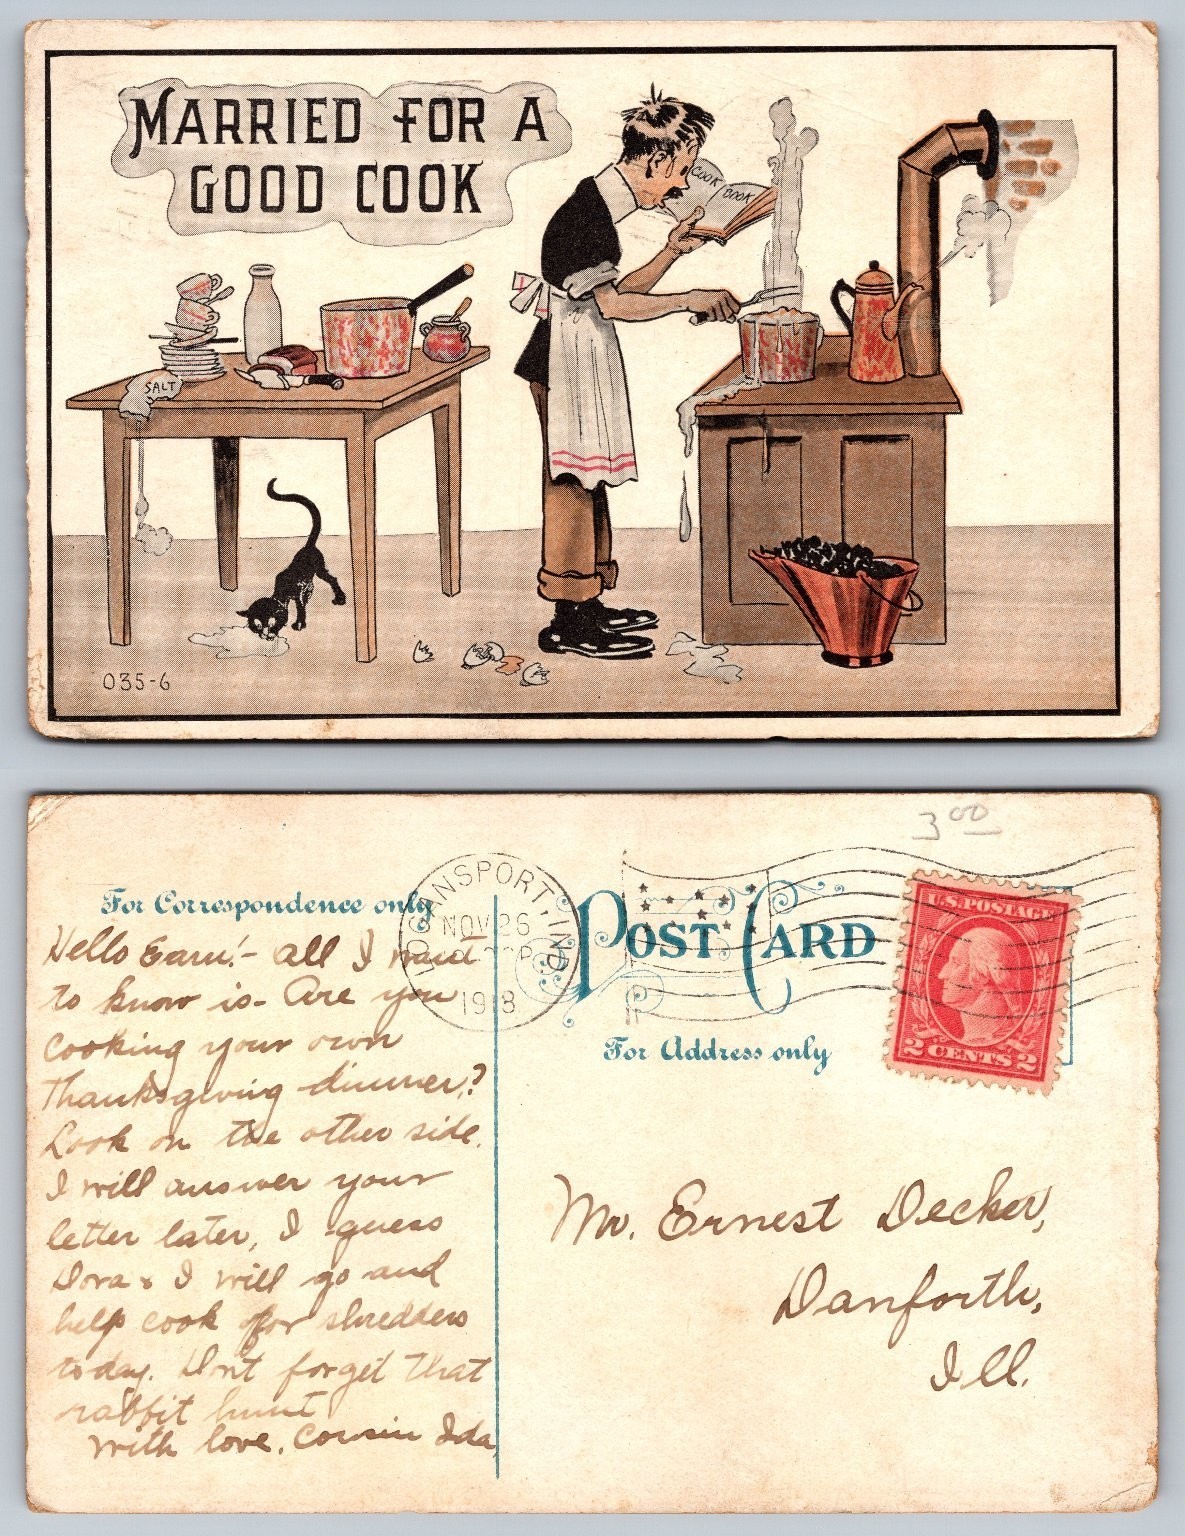 MARRIED FOR A
GOOD COOK
COOK BOOK
SALT
035-6
3 00
For Correspondence only
LOGANSPORT, IND
NOV 26
P
1918
POST CARD
For Address only
U.S. POSTAGE
2 CENTS 2
Hello Earn!- All I want
to know is- Are you
cooking your own
Thanksgiving dinner,?
Look on the other side.
I will answer your
letter later, I guess
Dora & I will go and
help cook for shredders
today. Don't forget that
rabbit hunt
With love. Cousin Ida,
Mr. Ernest Decker,
Danforth,
Ill.